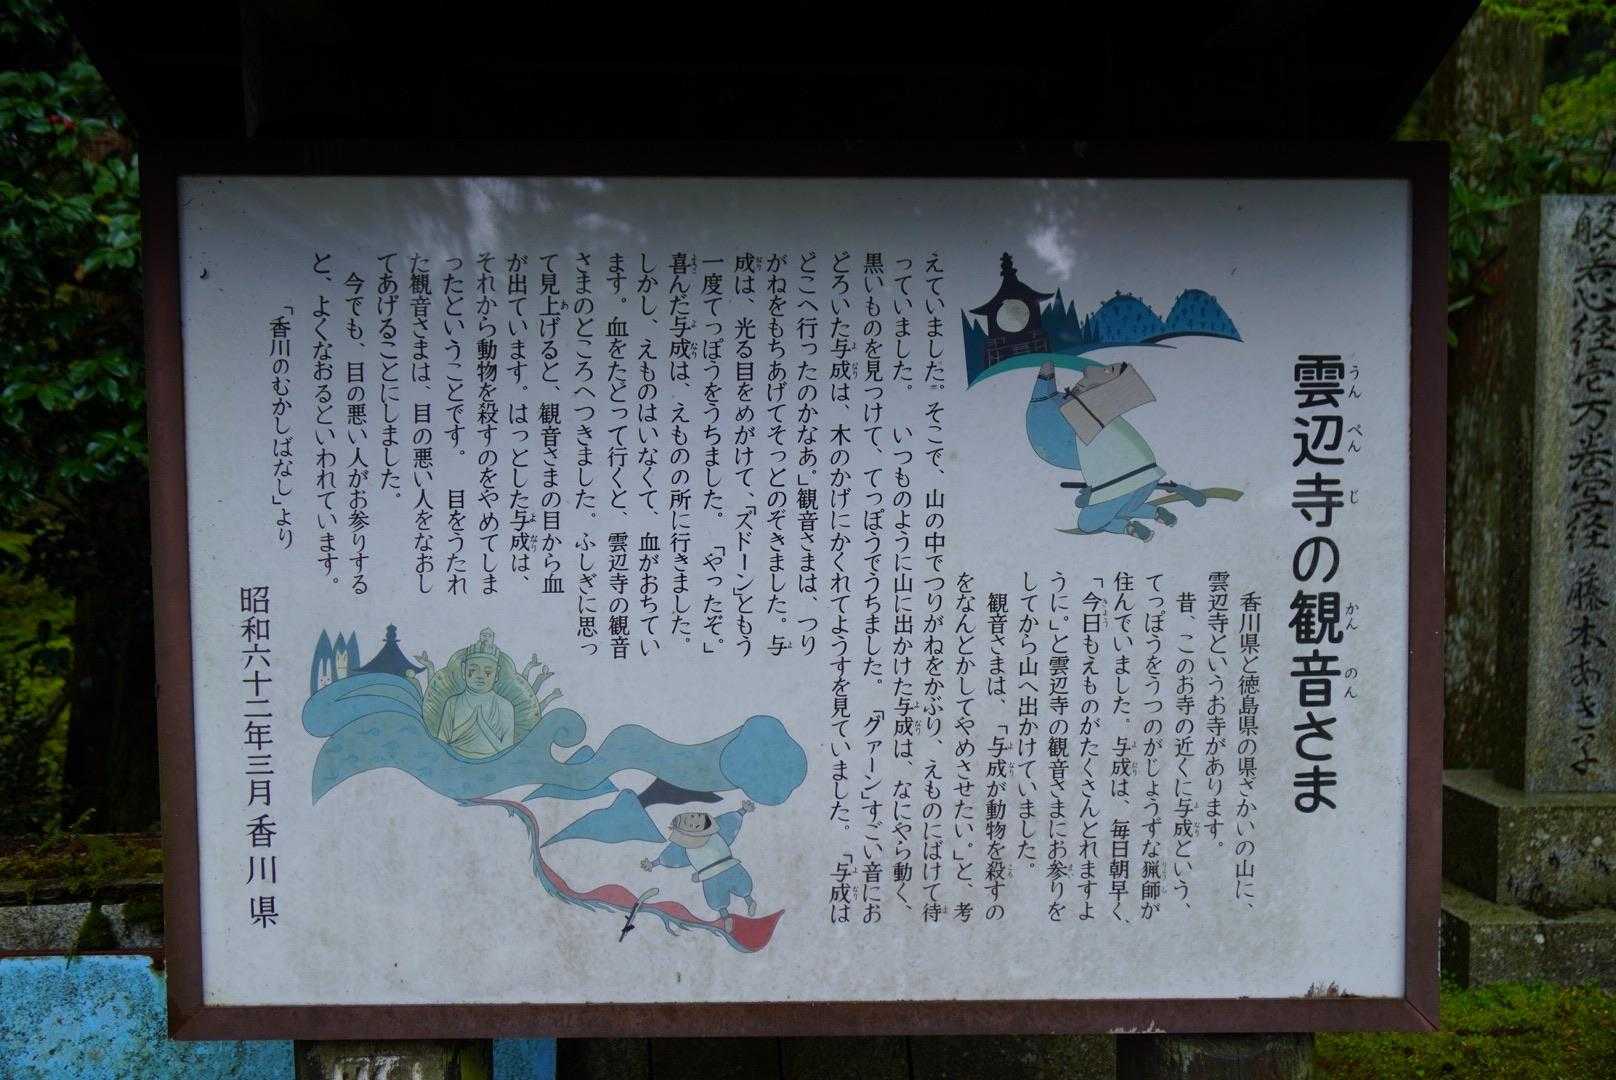 雲辺寺の観音さま
香川県と徳島県の県ざかいの山に、
雲辺寺というお寺があります。
昔、このお寺の近くに与成という、
てっぽうをうつのがじょうずな猟師が
住んでいました。与成は、毎日朝早く、
「今日もえものがたくさんとれますよ
うに。」と雲辺寺の観音さまにお参りを
してから山へ出かけていました。
観音さまは、「与成が動物を殺すの
をなんとかしてやめさせたい。」と、考
えていました。そこで、山の中でつりがねをかぶり、えものにばけて待
っていました。 いつものように山に出かけた与成は、なにやら動く、
黒いものを見つけて、てっぽうでうちました。「グァーン」すごい音にお
どろいた与成は、木のかげにかくれてようすを見ていました。「与成は
どこへ行ったのかなあ。」観音さまは、つり
がねをもちあげてそっとのぞきました。与
成は、光る目をめがけて、「ズドーン」ともう
一度てっぽうをうちました。「やったぞ。」
喜んだ与成は、えものの所に行きました。
しかし、えものはいなくて、血がおちてい
ます。血をたどって行くと、雲辺寺の観音
さまのところへつきました。ふしぎに思っ
て見上げると、観音さまの目から血
が出ています。はっとした与成は、
それから動物を殺すのをやめてしま
ったということです。 目をうたれ
た観音さまは、目の悪い人をなおし
てあげることにしました。
今でも、目の悪い人がお参りする
と、よくなおるといわれています。
「香川のむかしばなし」より
昭和六十二年三月 香川県
般若心経壱万巻写経 藤本あきみ